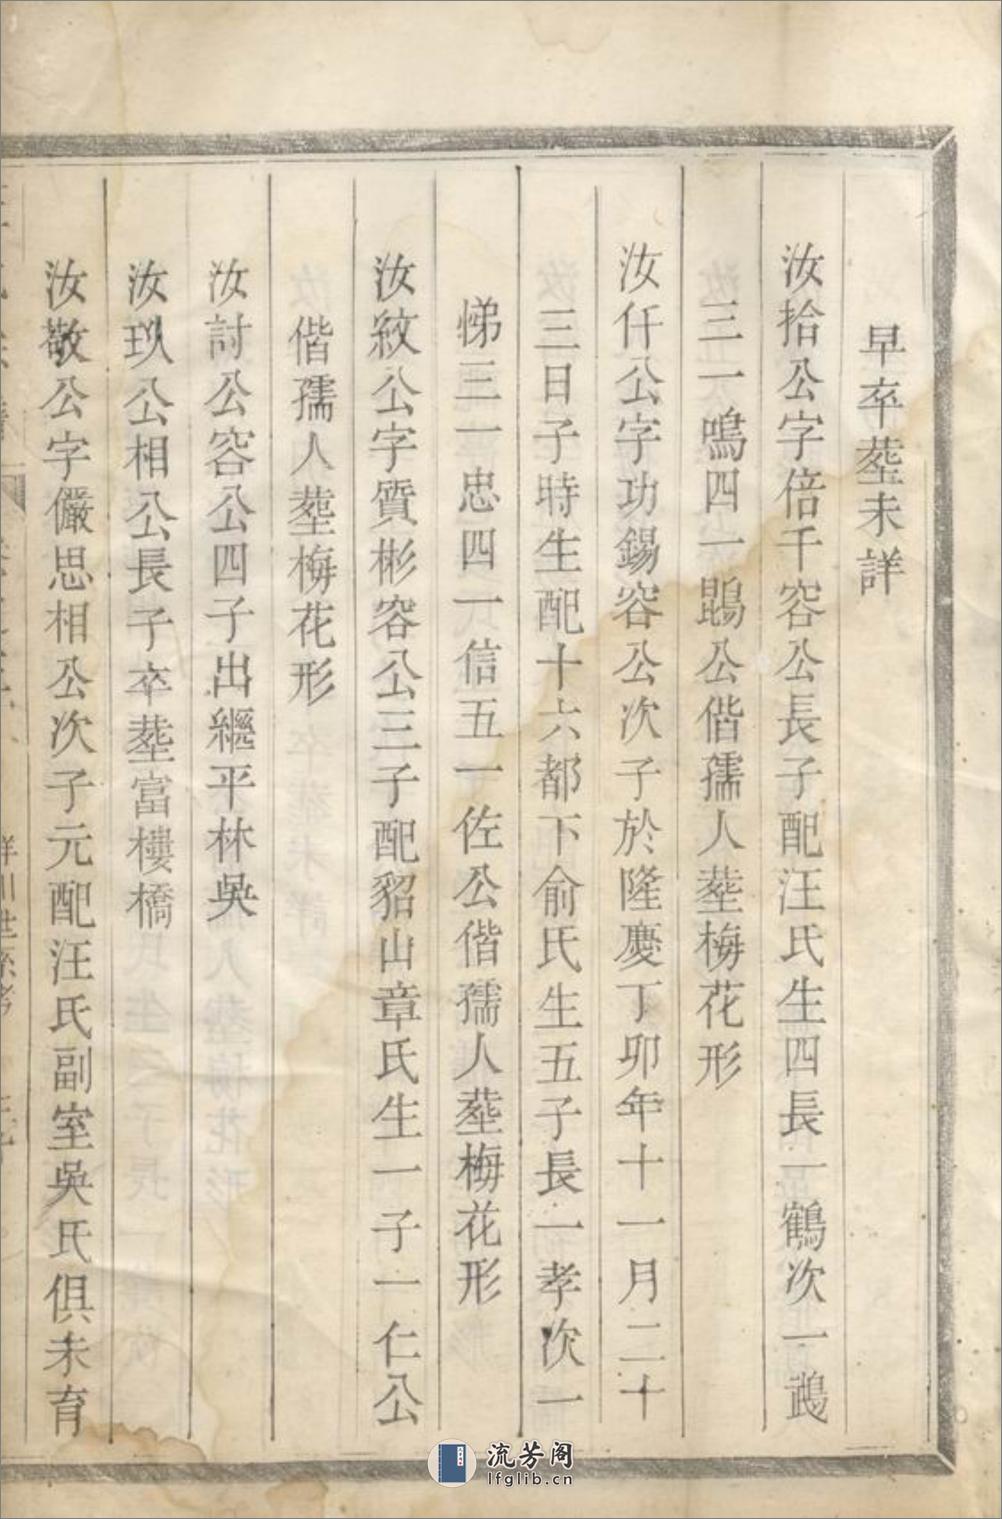 早卒塟未詳
汝拾公字倍千容公長子配汪氏生四長一鶴次一鵡
三一鳴四一鵾公偕孺人塟梅花形
汝仟公字功錫容公次子於隆慶丁卯年十一月二十
三日子時生配十六都下俞氏生五子長一孝次一
悌三一忠四一信五一佐公偕孺人塟梅花形
汝紋公字質彬容公三子配貂山章氏生一子一仁公
偕孺人塟梅花形
汝討公容公四子出繼平林吳
汝玖公相公長子卒塟富樓橋
汝敬公字儼思相公次子元配汪氏副室吳氏俱未育
流芳阁
lfglib.cn